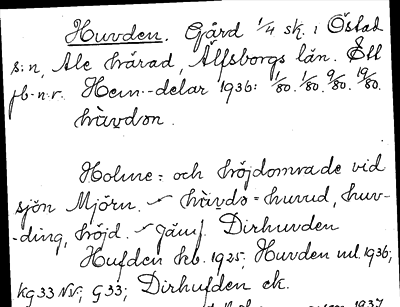 Huvden. Gård 1/4 sk. i Östad
s:n, Ale härad, Älfsborgs län. Ett
jb.n:r. Hem.-delar 1936: 1/80. 1/80. 9/80. 19/80.
hàvdən.
Holme= och höjdområde vid
sjön Mjörn. hàvdə = huvud, huv-
-ding, höjd. Jämf. Dirhuvden
Hufden hb. 1925; Huvden ml. 1936;
kg 33 NV; G 33; Dirhufden ek.
1937